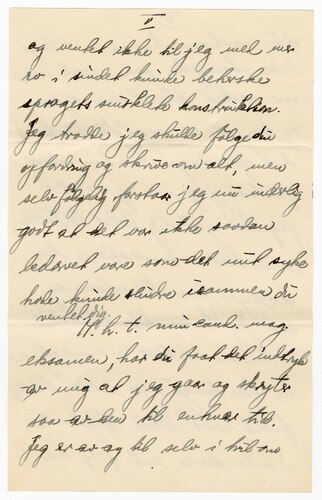 II
og ventet ikke til jeg med mer
ro i sindet kunde beherske
sprogets innviklete konstruktion.
Jeg trodde jeg skulde følge din
opfordring og skrive om alt, men
selvfølgelig forstaar jeg nu inderlig
godt at det var ikke saadan
bedærvet vare som det mit syke
hode kunde sludre isammen du
ventet dig.
H. h. t. min cand. mag.
eksamen, har du faat det indtryk
av mig at jeg gaar og skryter
saa av den til enhver tid.
Jeg er av og til selv i tvil om